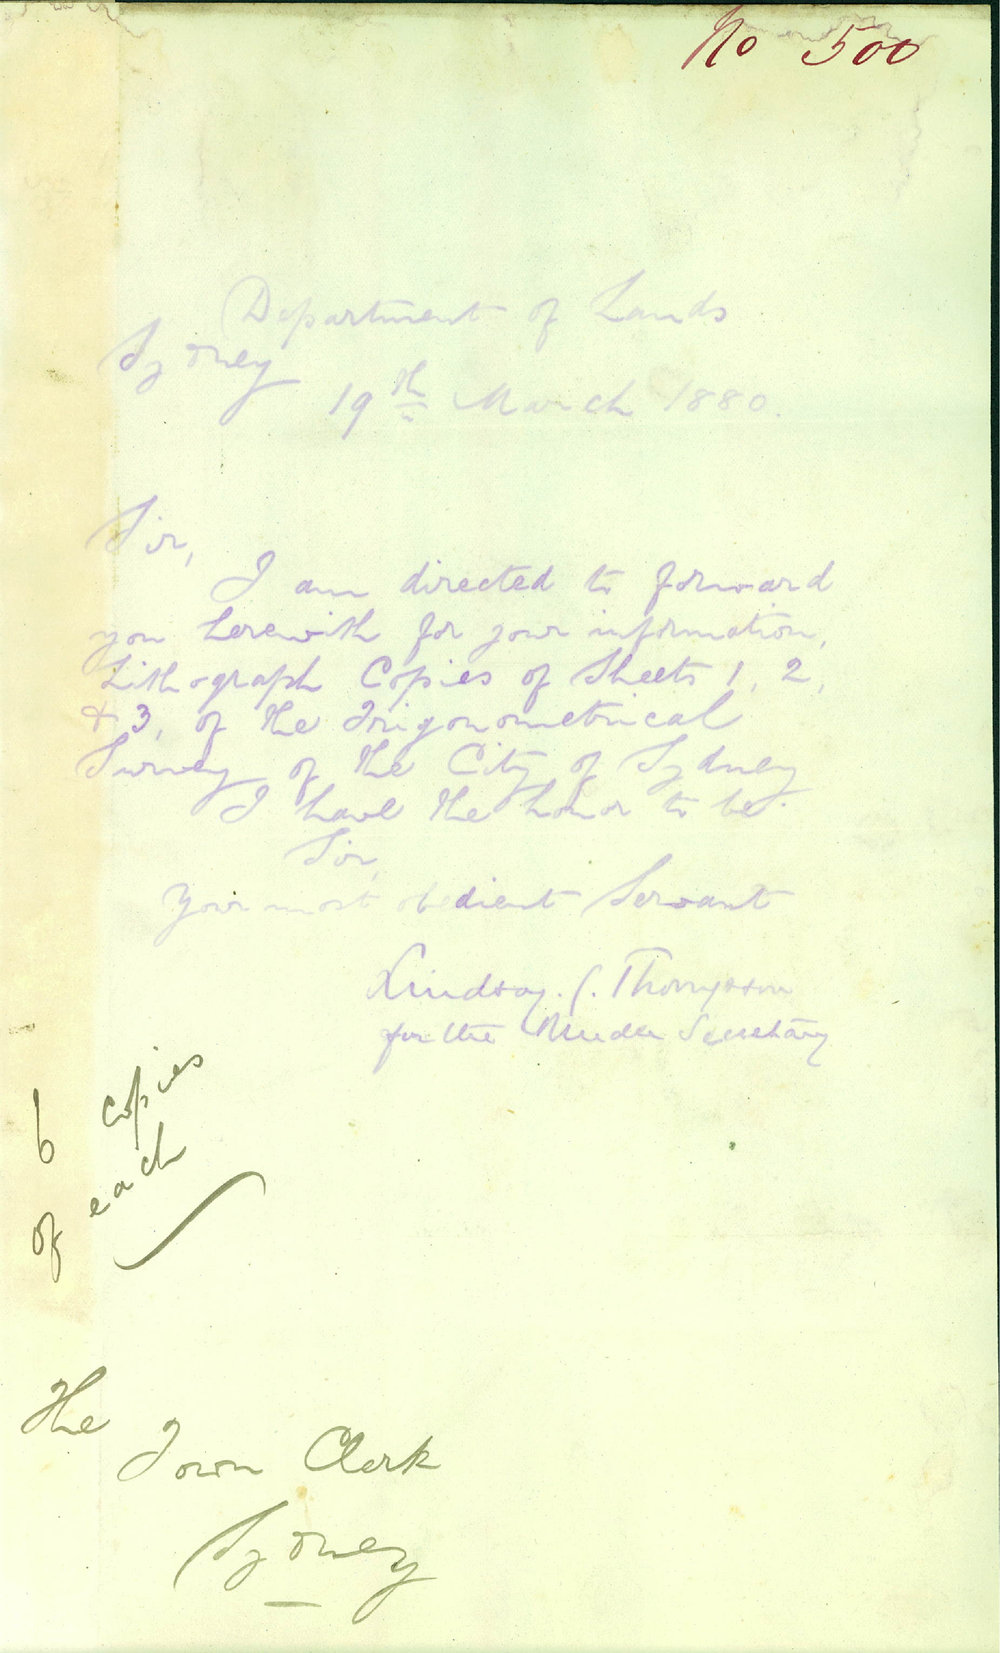 No 500
Department of Lands
Sydney
19th March 1880.
Sir,
I am directed to forward
you herewith for your information,
Lithograph Copies of Sheets 1, 2,
& 3, of the Trigonometrical
Survey of the City of Sydney
I have the honor to be
Sir,
Your most obedient Servant
Lindsay. G. Thompson
for the Under Secretary
6 copies
of each
The
Town Clerk
Sydney